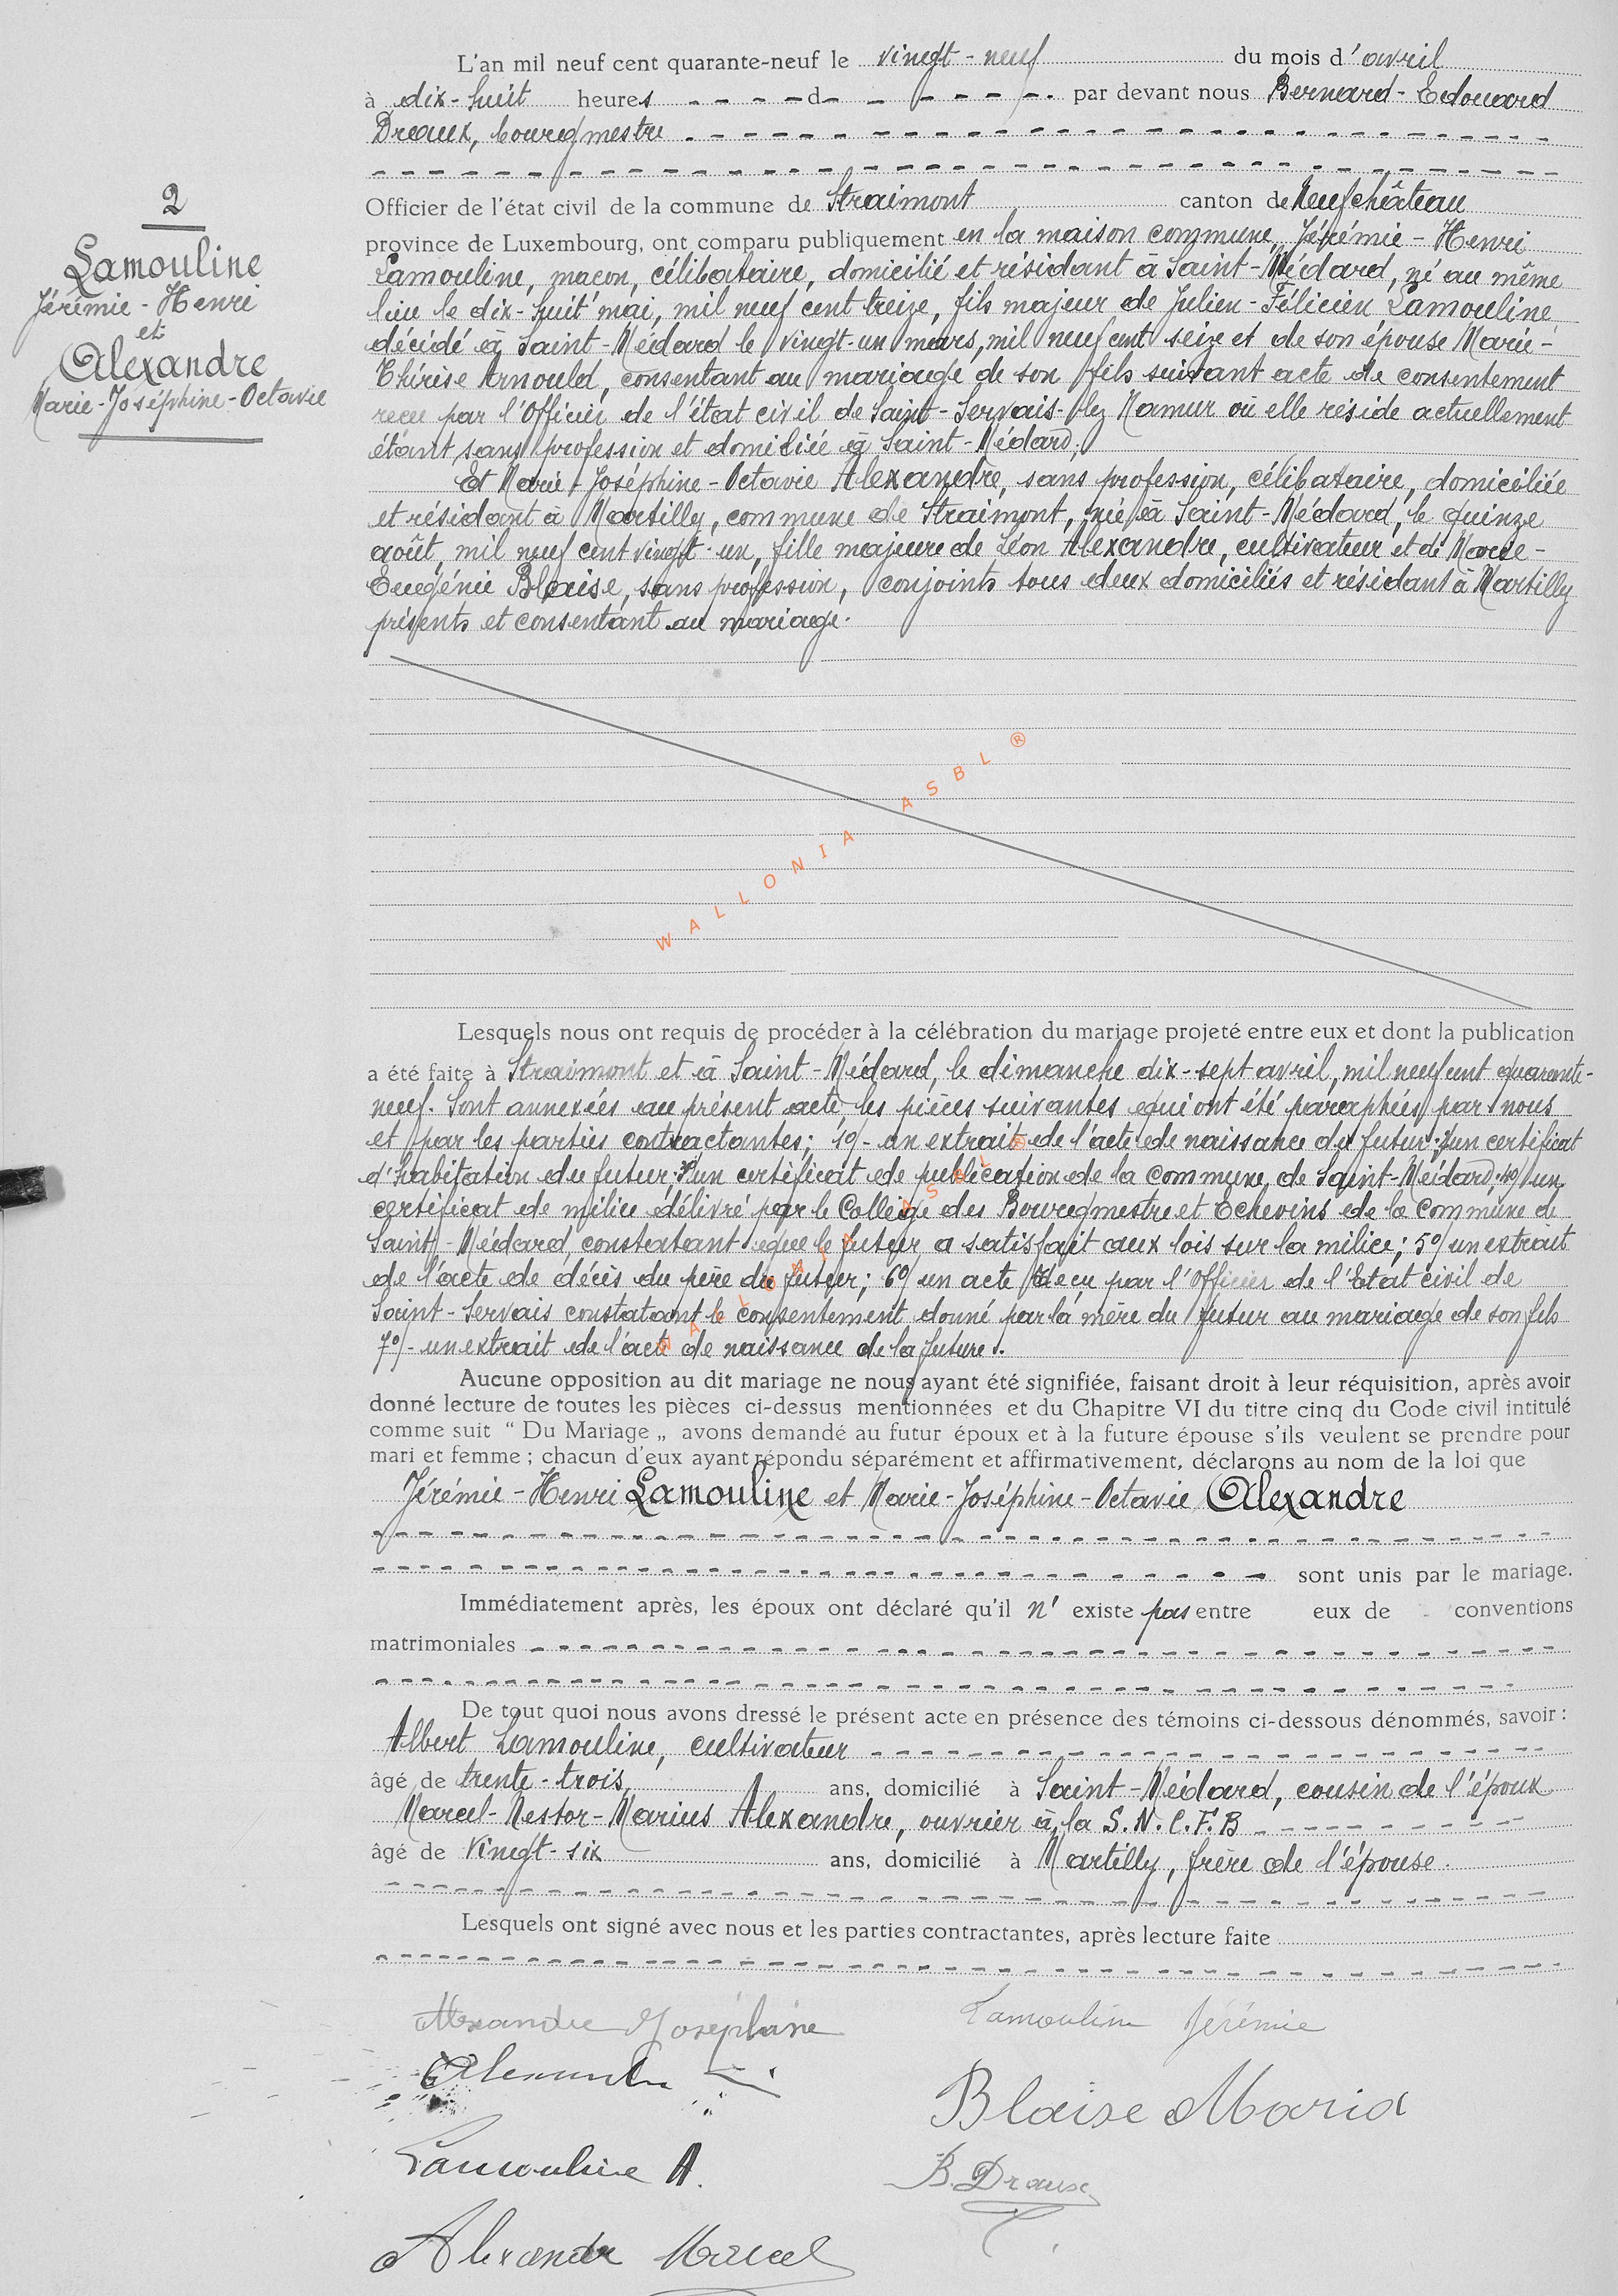 2
Lamouline
Jérémie - Henri
et
Alexandre
Marie - Joséphine - Octavie
L'an mil neuf cent quarante-neuf le vingt - neuf du mois d'avril
à dix-huit heures d par devant nous Bernard - Edouard
Draux, bourgmestre
Officier de l'état civil de la commune de Straimont canton de Neufchâteau
province de Luxembourg, ont comparu publiquement en la maison commune, Jérémie - Henri
Lamouline, maçon, célibataire, domicilié et résidant à Saint-Médard, né au même
lieu le dix-huit mai, mil neuf cent treize, fils majeur de Julien - Félicien Lamouline,
décédé à Saint-Médard le vingt-un mars, mil neuf cent seize et de son épouse Marie-
Thérèse Arnould, consentant au mariage de son fils suivant acte de consentement
reçu par l'Officier de l'état civil de Saint-Servais-lez Namur où elle réside actuellement
étant sans profession et domiciliée à Saint-Médard;
Et Marie - Joséphine - Octavie Alexandre, sans profession, célibataire, domiciliée
et résidant à Martilly, commune de Straimont, née à Saint-Médard, le quinze
août, mil neuf cent vingt-un, fille majeure de Léon Alexandre, cultivateur et de Marie-
Eugénie Blaise, sans profession, conjoints tous deux domiciliés et résidant à Martilly
présents et consentant au mariage.
WALLONIA ASBL ®
Lesquels nous ont requis de procéder à la célébration du mariage projeté entre eux et dont la publication
a été faite à Straimont et à Saint-Médard, le dimanche dix-sept avril, mil neuf cent quarante-
neuf. Sont annexées au présent acte, les pièces suivantes qui ont été paraphées par nous
et par les parties contractantes; 1º/- un extrait de l'acte de naissance du futur; 2º/ un certificat
d'habitation du futur; 3º/ un certificat de publication de la commune de Saint-Médard; 4º/ un
certificat de milice délivré par le Collège des Bourgmestre et Echevins de la Commune de
Saint-Médard, constatant que le futur a satisfait aux lois sur la milice; 5º/ un extrait
de l'acte de décès du père du futur; 6º/ un acte reçu par l'Officier de l'Etat civil de
Saint-Servais constatant le consentement donné par la mère du futur au mariage de son fils
7º/- un extrait de l'acte de naissance de la future.
WALLONIA ASBL ®
Aucune opposition au dit mariage ne nous ayant été signifiée, faisant droit à leur réquisition, après avoir
donné lecture de toutes les pièces ci-dessus mentionnées et du Chapitre VI du titre cinq du Code civil intitulé
comme suit “ Du Mariage „ avons demandé au futur époux et à la future épouse s'ils veulent se prendre pour
mari et femme ; chacun d'eux ayant répondu séparément et affirmativement, déclarons au nom de la loi que
Jérémie - Henri Lamouline et Marie - Joséphine - Octavie Alexandre
sont unis par le mariage.
Immédiatement après, les époux ont déclaré qu'il n' existe pas entre eux de conventions
matrimoniales
De tout quoi nous avons dressé le présent acte en présence des témoins ci-dessous dénommés, savoir :
Albert Lamouline, cultivateur
âgé de trente-trois ans, domicilié à Saint-Médard, cousin de l'époux
Marcel-Nestor-Marius Alexandre, ouvrier à la S.N.C.F.B
âgé de vingt-six ans, domicilié à Martilly, frère de l'épouse.
Lesquels ont signé avec nous et les parties contractantes, après lecture faite
Alexandre Joséphine Lamouline Jérémie
Alexandre
Blaise Maria
Lamouline A.
B. Draux
Alexandre Marcel